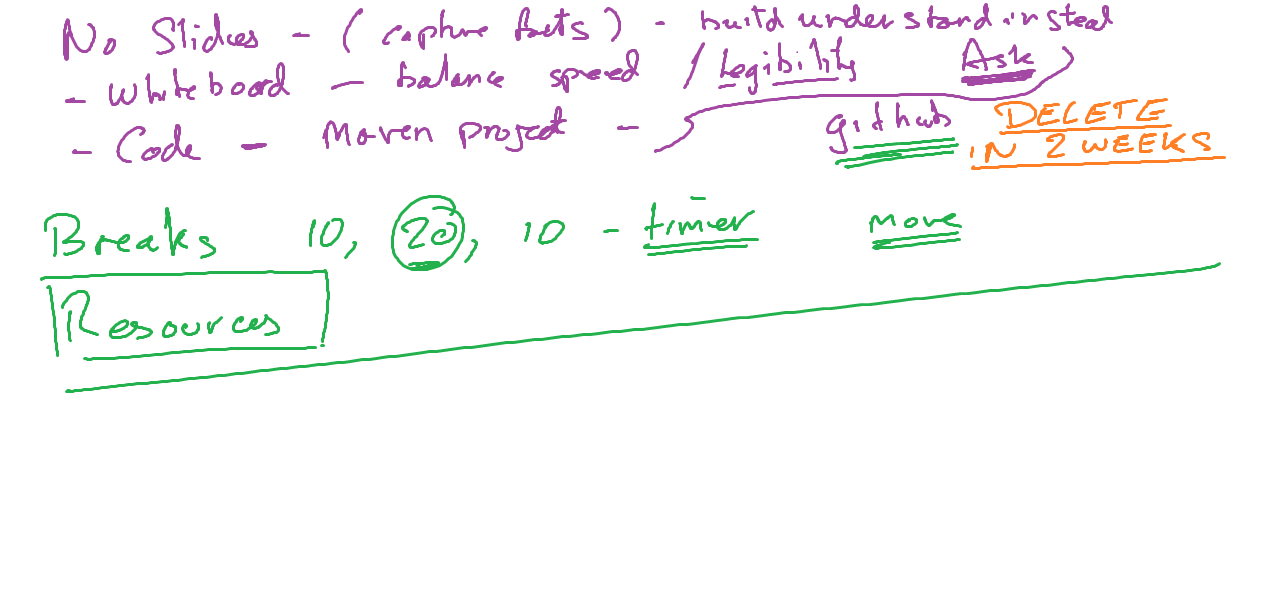 No Slides - (capture facts) - build understand instead
- Whiteboard - balance speed / Legibility Ask
- Code - Maven project - github DELETE IN 2 WEEKS
Breaks 10, 20, 10 - timer move
Resources